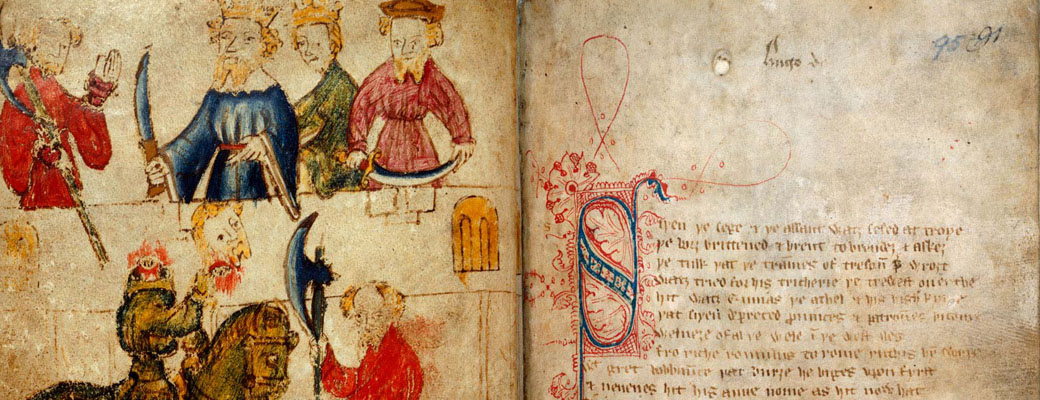 Hugo de
95 91
Siþen þe sege & þe assaut watz sesed at troye
þe borȝ brittened & brent to brondeȝ & askeȝ
þe tulk þat þe trammes of tresoun þ͛ wroȝt
Watz tried for his tricherie þe trewest on erthe
hit watz Ennias þe athel & his highe kynde
þat siþen depreced prouinces & patrounes bicome
Welneȝe of al þe wele ī þe west iles
fro riche romulus to rome ricchis hȳ swyþe
gret bobbaunce þat burȝe he biges vpon fyrst
& neuenes hit his aune nome as hit now hat